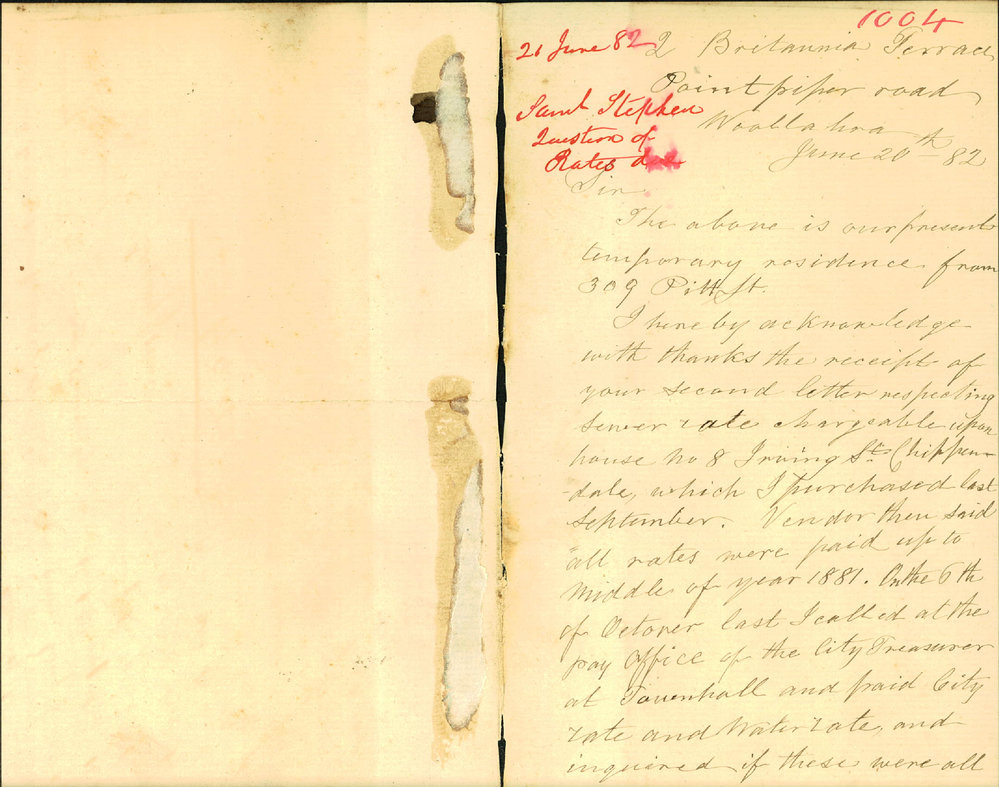 1004
21 June 82
Saml Stephen
Question of
Rates due
2 Britannia Terrace
Point piper road
Woollahra
June 20th 82
Sir
The above is our present
temporary residence from
309 Pitt St.
I hereby acknowledge
with thanks the receipt of
your second letter respecting
sewer rate chargeable upon
house No 8 Irving St. Chippen-
-dale, which I purchased last
September. Vendor then said
"all rates were paid up to
middle of year 1881. On the 6th
of October last I called at the
pay Office of the City Treasurer
at Townhall and paid City
rate and Water rate, and
inquired if these were all